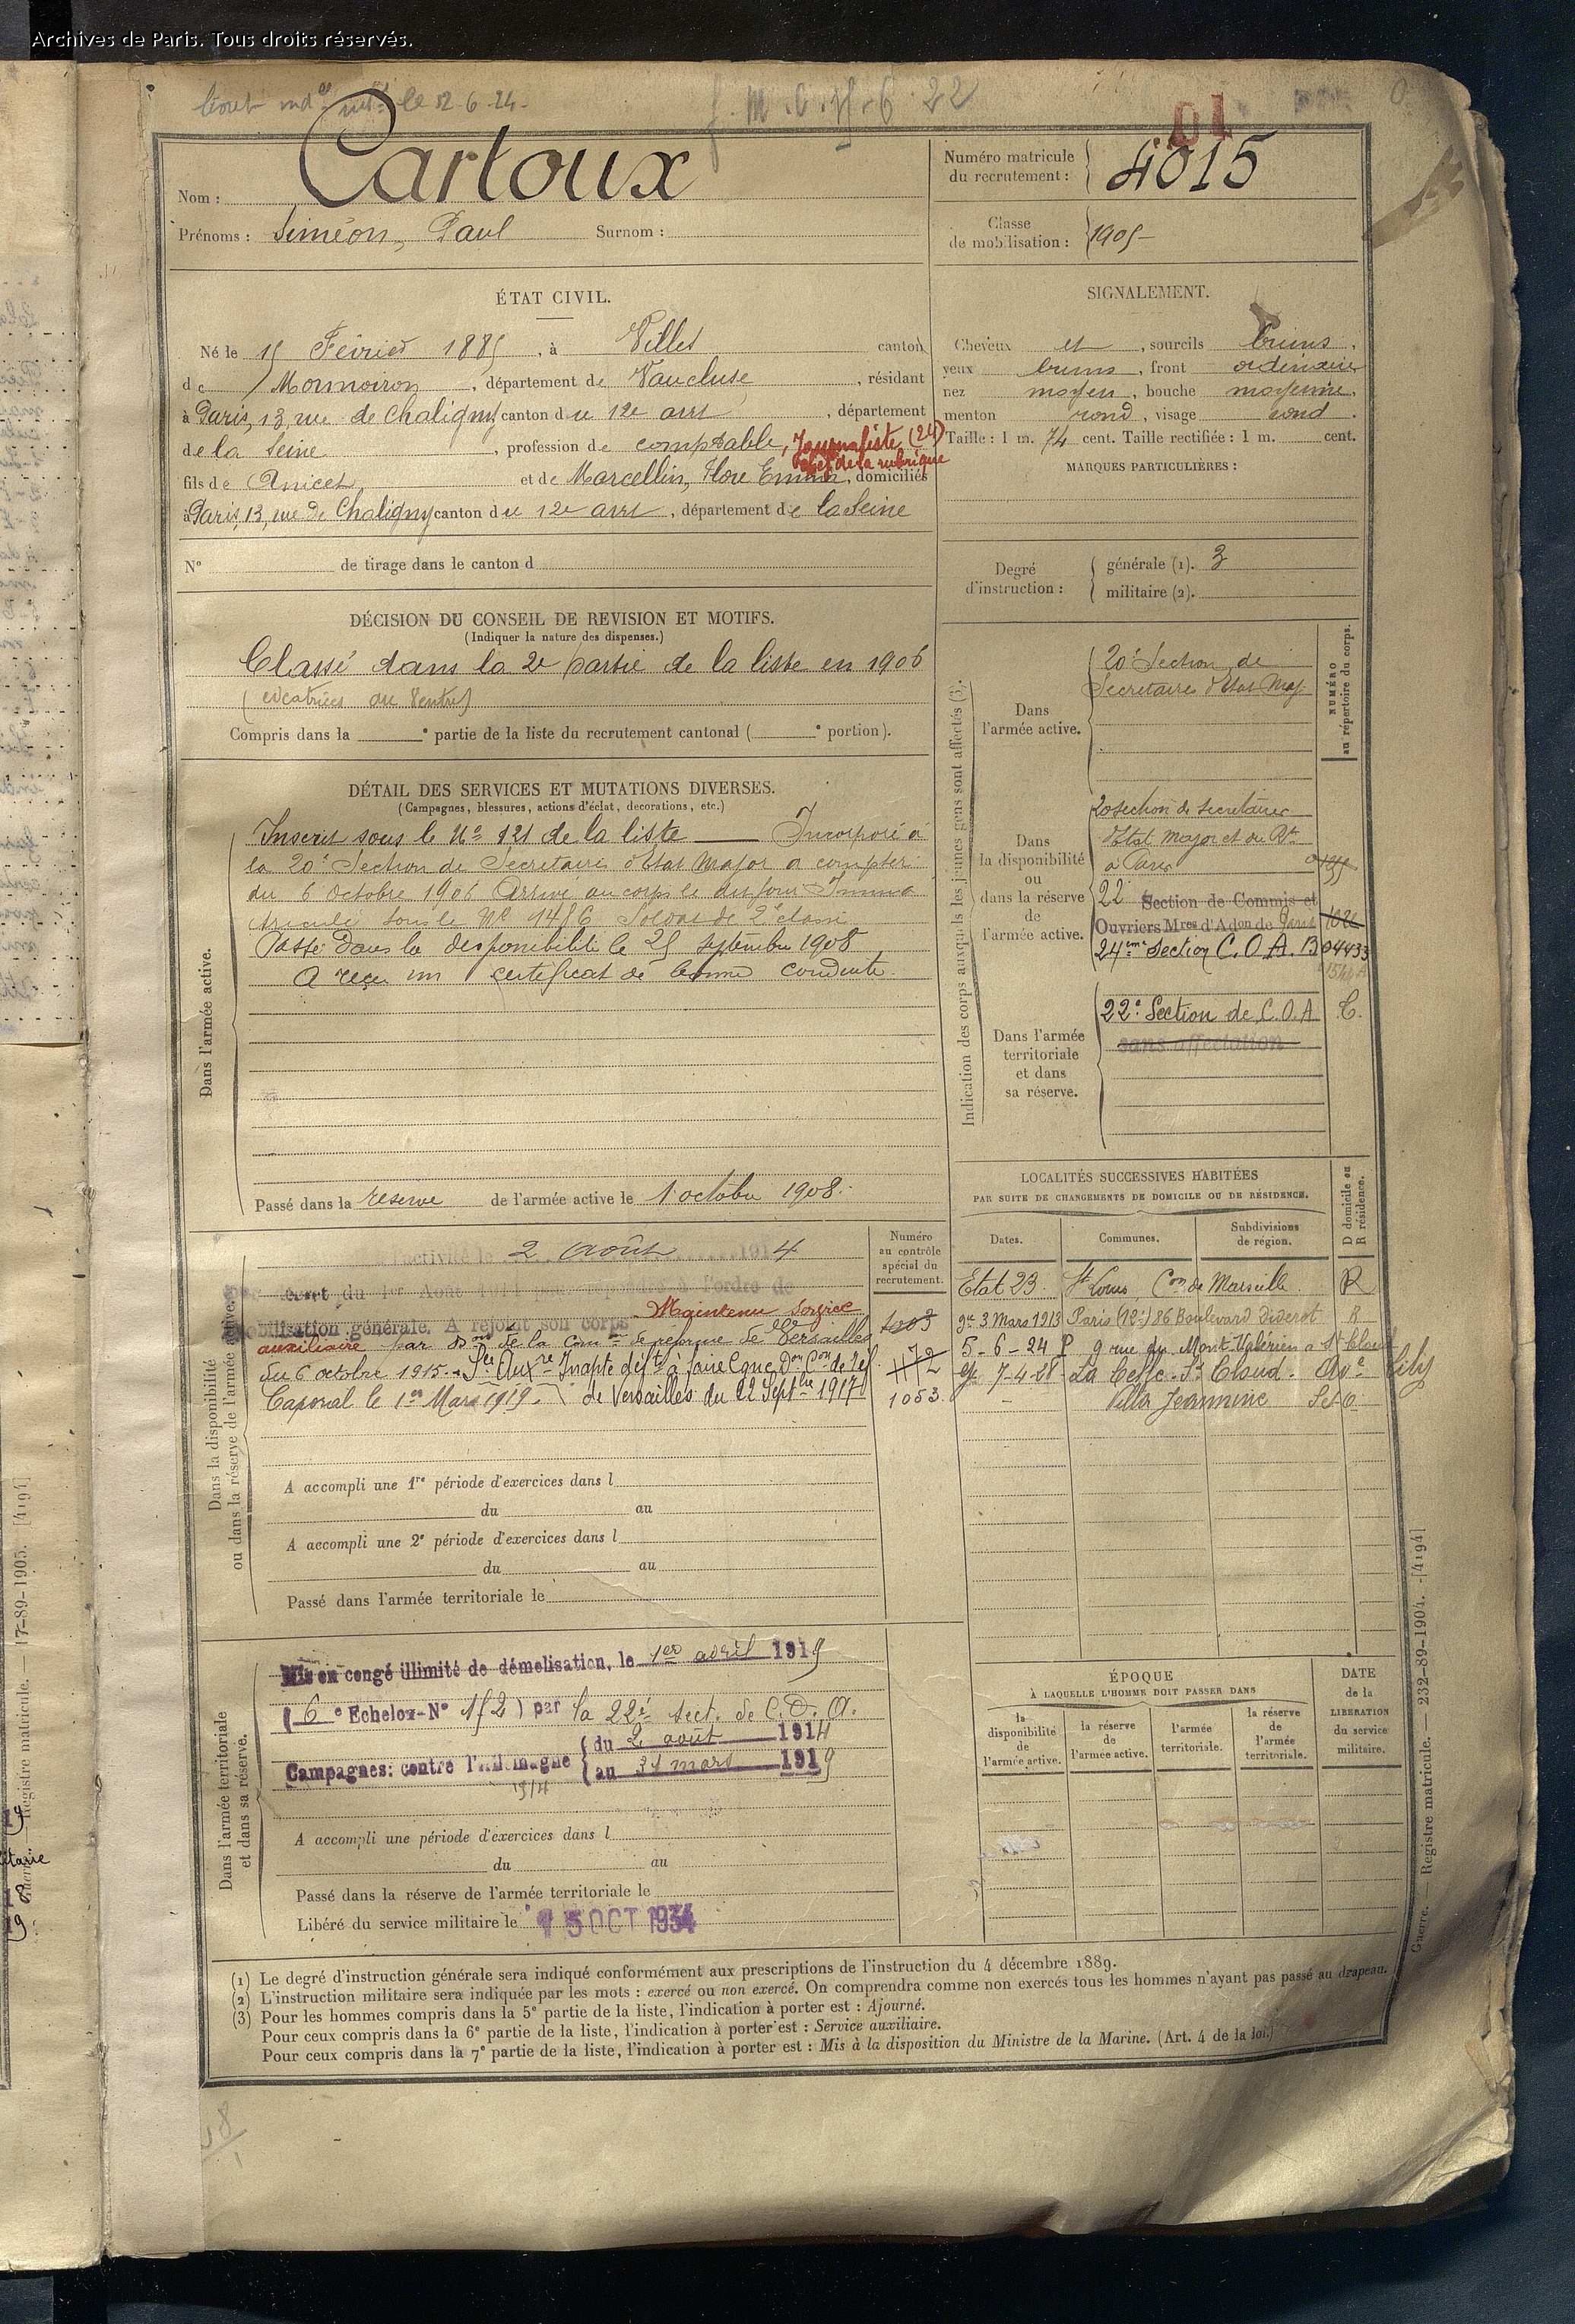 Archives de Paris. Tous droits réservés.
le 12-6-24-
6 22
01
Nom : Cartoux
Prénoms : Siméon, Paul Surnom :
Numéro matricule
du recrutement : 4015
Classe
de mobilisation : 1905
ÉTAT CIVIL.
Né le 15 Février 1885, à Villes canton
de Mormoiron, département de Vaucluse, résidant
à Paris, 13, rue de Chaligny canton du 12e arrt, département
de la Seine, profession de comptable, Journaliste (24)
chef de la rubrique
fils de Anicet, et de Marcellin, Flore Emma, domiciliés
à Paris, 13, rue de Chaligny canton du 12e arrt, département de la Seine
N° de tirage dans le canton d
SIGNALEMENT.
Cheveux et , sourcils bruns,
yeux bruns, front ordinaire
nez moyen, bouche moyenne,
menton rond, visage rond.
Taille : 1 m. 74 cent. Taille rectifiée : 1 m. cent.
MARQUES PARTICULIÈRES :
Degré
d'instruction :
générale (1). 3
militaire (2).
DÉCISION DU CONSEIL DE REVISION ET MOTIFS.
(Indiquer la nature des dispenses.)
Classé dans la 2e partie de la liste en 1906
(cicatrices au Ventre)
Compris dans la e partie de la liste du recrutement cantonal ( e portion).
DÉTAIL DES SERVICES ET MUTATIONS DIVERSES.
(Campagnes, blessures, actions d'éclat, decorations, etc.)
Dans l'armée active.
Inscrit sous le N° 121 de la liste — Incorporé à
la 20e Section de Secrétaires d'Etat Major à compter
du 6 octobre 1906 Arrivé au corps le dit jour Imma
triculé sous le N° 1456 Soldat de 2e classe
Passé dans la disponibilité le 25 septembre 1908
A reçu un certificat de bonne conduite.
Passé dans la réserve de l'armée active le 1 octobre 1908.
Indication des corps auxquels les jeunes gens sont affectés (3).
NUMÉRO
au répertoire du corps.
Dans
l'armée active.
20e Section de
Secrétaires d'Etat Maj.
Dans
la disponibilité
ou
dans la réserve
de
l'armée active.
20 Section de Secrétaires
d'Etat Major et du Rt
à Paris
22 Section de Commis et
Ouvriers Mres d'Adon de Paris
24me Section C.O.A. B 04433
Dans l'armée
territoriale
et dans
sa réserve.
22e Section de C.O.A. C.
sans affectation
LOCALITÉS SUCCESSIVES HABITÉES
PAR SUITE DE CHANGEMENTS DE DOMICILE OU DE RÉSIDENCE.
D domicile ou
R résidence.
Dates. Communes. Subdivisions
de région.
Etat 23 St Louis, Con de Marseille R
gie 3 Mars 1913 Paris (12e) 86 Boulevard Diderot R
5-6-24 P 9 rue du Mont Valérien à St Cloud
gie 7-4-28 La Celle-St Cloud. Ave Lily
Villa Jeannine S et O
Dans la disponibilité
ou dans la réserve de l'armée active.
l'activité le 2 Août 1914
décret du 1er Août 1914
mobilisation générale. A rejoint son corps Maintenu service
auxiliaire par Don de la Comon de réforme de Versailles
du 6 octobre 1915. Sce Auxre Inapte déft à faire Cgne Don Con de réf.
Caporal le 1er Mars 1919. de Versailles du 22 Septbre 1917
Numéro
au contrôle
spécial du
recrutement.
1053.
A accompli une 1re période d'exercices dans l
du au
A accompli une 2e période d'exercices dans l
du au
Passé dans l'armée territoriale le
Dans l'armée territoriale
et dans sa réserve.
Mis en congé illimité de démolisation, le 1er avril 1919
(6e Echelon-N° 152) par la 22e Sect. de C.O.A.
Campagnes: contre l'Allemagne
du 2 août 1914
au 31 mars 1919
A accompli une période d'exercices dans l
du au
Passé dans la réserve de l'armée territoriale le
Libéré du service militaire le 15 OCT 1934
ÉPOQUE
À LAQUELLE L'HOMME DOIT PASSER DANS
la
disponibilité
de
l'armée active.
la réserve
de
l'armée active.
l'armée
territoriale.
la réserve
de
l'armée
territoriale.
DATE
de la
LIBERATION
du service
militaire.
(1) Le degré d'instruction générale sera indiqué conformément aux prescriptions de l'instruction du 4 décembre 1889.
(2) L'instruction militaire sera indiquée par les mots : exercé ou non exercé. On comprendra comme non exercés tous les hommes n'ayant pas passé au drapeau.
(3) Pour les hommes compris dans la 5e partie de la liste, l'indication à porter est : Ajourné.
Pour ceux compris dans la 6e partie de la liste, l'indication à porter est : Service auxiliaire.
Pour ceux compris dans la 7e partie de la liste, l'indication à porter est : Mis à la disposition du Ministre de la Marine. (Art. 4 de la loi.)
Guerre. — Registre matricule. — 232-89-1904. - [4194]
Registre matricule. — 17-89-1905. [4194]